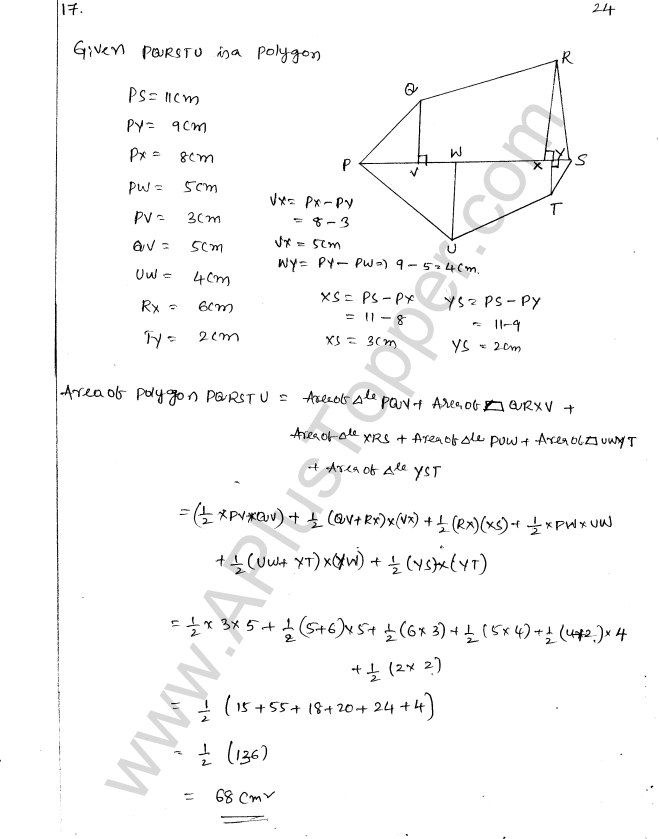 17.
24
Given PQRSTU is a polygon
PS = 11cm
PY = 9cm
Px = 8cm
PW = 5cm
PV = 3cm
QV = 5cm
UW = 4cm
Rx = 6cm
Ty = 2cm
R
Q
P
V
W
X
Y
S
T
U
Vx = Px - PV
= 8 - 3
Vx = 5cm
WY = PY - PW => 9 - 5 = 4cm.
XS = PS - Px
= 11 - 8
XS = 3cm
YS = PS - PY
= 11-9
YS = 2cm
Area of Polygon PQRSTU = Area of Δle PQV + Area of ⏢ QRXV +
Area of Δle XRS + Area of Δle PUW + Area of ⏢ UWYT
+ Area of Δle YST
= (1/2 × PV × QV) + 1/2 (QV + Rx) × (Vx) + 1/2 (Rx) (XS) + 1/2 × PW × UW
+ 1/2 (UW + YT) × (YW) + 1/2 (YS) × (YT)
= 1/2 × 3 × 5 + 1/2 (5+6) × 5 + 1/2 (6 × 3) + 1/2 (5 × 4) + 1/2 (4+2) × 4
+ 1/2 (2 × 2)
= 1/2 (15 + 55 + 18 + 20 + 24 + 4)
= 1/2 (136)
= 68 cm²
www.APlusTopper.com